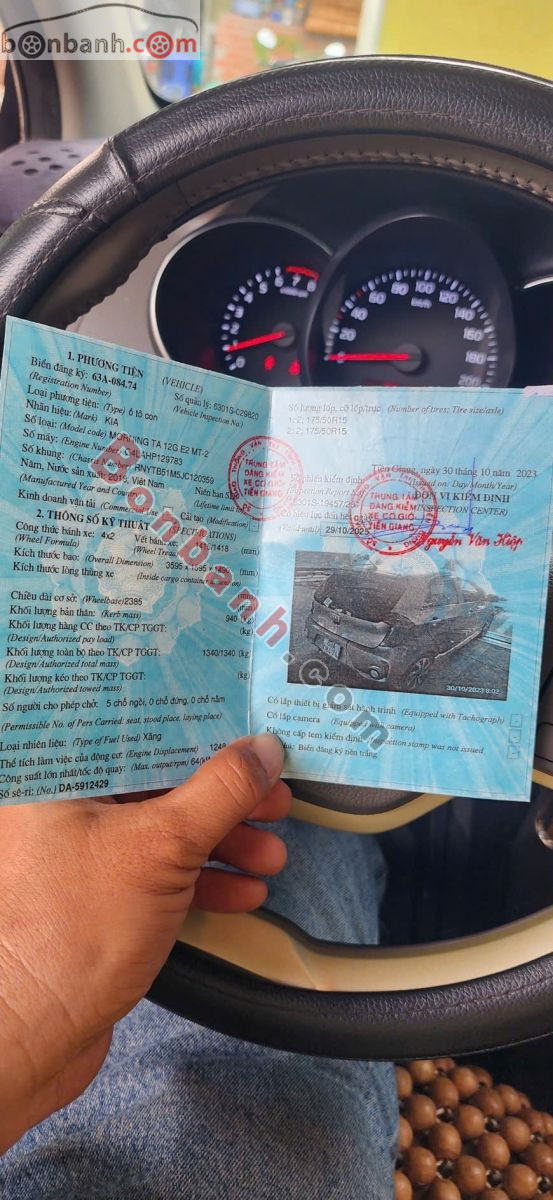 bonbanh.com
1. PHƯƠNG TIỆN (VEHICLE)
Biển đăng ký: 63A-084.74
(Registration Number)
Số quản lý: 6301S-029820
(Vehicle Inspection No.)
Loại phương tiện: (Type) ô tô con
Nhãn hiệu: (Mark) KIA
Số loại: (Model code) MORNING TA 12G E2 MT-2
Số máy: (Engine Number)
Số khung: (Chassis Number) RNYTB51M5JC120359
Năm, Nước sản xuất: 2019, Việt Nam
(Manufactured Year and
Niên hạn
(Lifetime
Kinh doanh vận tải
(Commercial Use
Cải tạo
(Modification)
2. THÔNG SỐ KỸ THUẬT
Công thức bánh xe: 4x2
(Wheel Formula)
Vết bánh
/1418 (mm)
(Wheel
Kích thước bao: (Overall Dimension) 3595 x 1595 x 1490 (mm)
Kích thước lòng thùng xe
(Inside cargo container (mm)
Chiều dài cơ sở: (Wheelbase) 2385 (mm)
Khối lượng bản thân: (Kerb mass) 940 (kg)
Khối lượng hàng CC theo TK/CP TGGT: (kg)
(Design/Authorized pay load)
Khối lượng toàn bộ theo TK/CP TGGT: 1340/1340 (kg)
(Design/Authorized total mass)
Khối lượng kéo theo TK/CP TGGT: (kg)
(Design/Authorized towed mass)
Số người cho phép chở: 5 chỗ ngồi, 0 chỗ đứng, 0 chỗ nằm
(Permissible No. of Pers Carried: seat, stood place, laying place)
Loại nhiên liệu: (Type of Fuel Used) Xăng
Thể tích làm việc của động cơ: (Engine Displacement) 1248
Công suất lớn nhất/tốc độ quay: (Max. output/rpm) 64(k
Số sê-ri: (No.) DA-5912429
Số lượng lốp, cỡ lốp/trục (Number of tires; Tire size/axle)
1: 2; 175/50R15
2: 2; 175/50R15
Tiền Giang, ngày 30 tháng 10 năm 2023
(Issued on: Day/Month/Year)
phiếu kiểm định
(Inspection Report
ĐƠN VỊ KIỂM ĐỊNH
(INSPECTION CENTER)
Có hiệu lực đến hết
(Valid until) 29/10/2025
TRUNG TÂM
ĐĂNG KIỂM
XE CƠ GIỚI
TIỀN GIANG
TRUNG TÂM
ĐĂNG KIỂM
XE CƠ GIỚI
TIỀN GIANG
Nguyễn Văn Hiệp
30/10/2023 8:02
Có lắp thiết bị giám sát hành trình (Equipped with Tachograph)
Có lắp camera (Equipped with camera)
Không cấp tem kiểm định (Inspection stamp was not issued)
Biển đăng ký nền trắng
Bonbanh.com
20 40 60 80 100 120 140 160 180 200
km/h